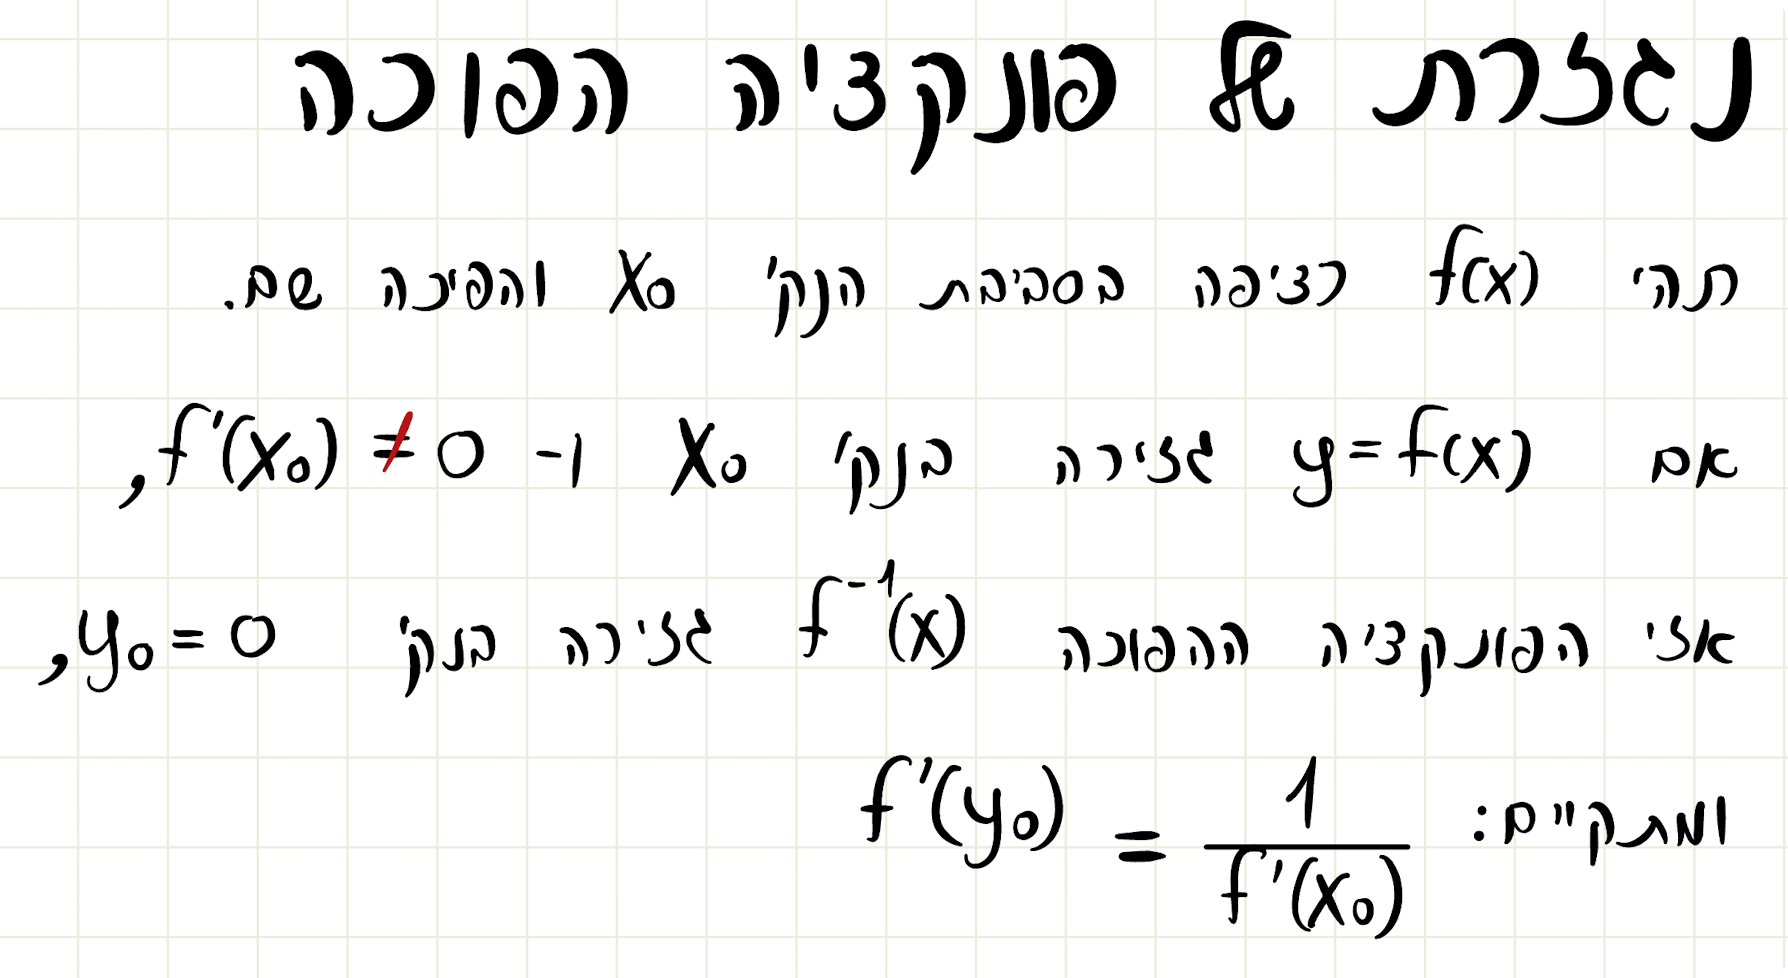 נגזרת של פונקציה הפוכה
תהי f(x) רציפה בסביבת הנק' x₀ והפיכה שם.
אם y=f(x) גזירה בנק' x₀ ו- f'(x₀) ≠ 0,
אזי הפונקציה ההפוכה f⁻¹(x) גזירה בנק' y₀ = 0,
ומתקיים: f'(y₀) = 1/f'(x₀)